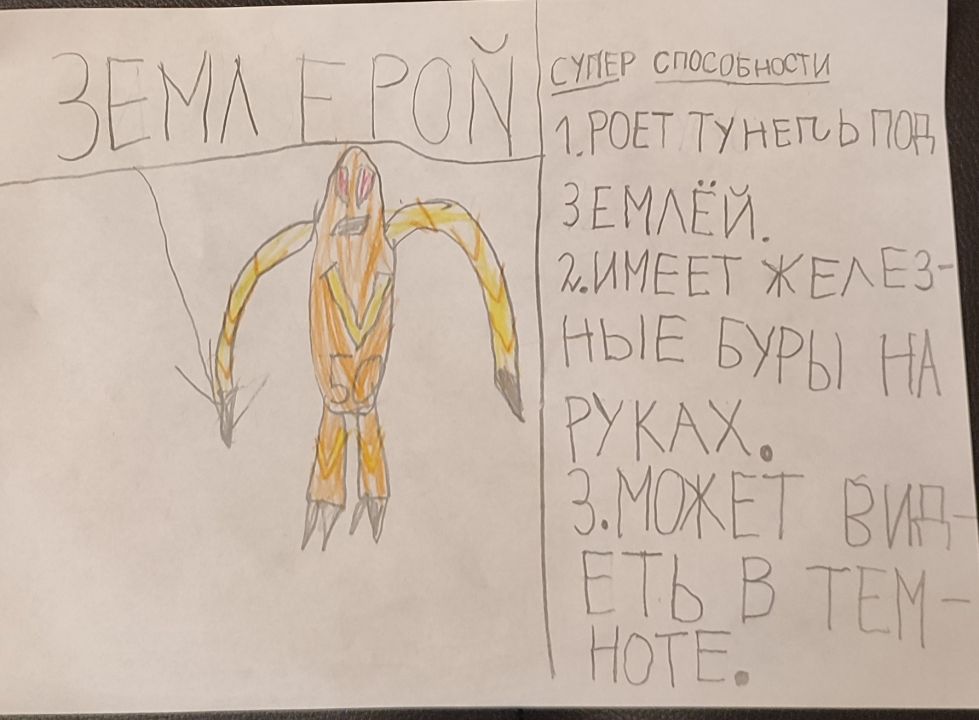 ЗЕМЛЕРОЙ
СУПЕР СПОСОБНОСТИ
1.РОЕТ ТУНЕЛЬ ПОД
ЗЕМЛЁЙ.
2.ИМЕЕТ ЖЕЛЕЗ-
НЫЕ БУРЫ НА
РУКАХ.
3.МОЖЕТ ВИД-
ЕТЬ В ТЕМ-
НОТЕ.